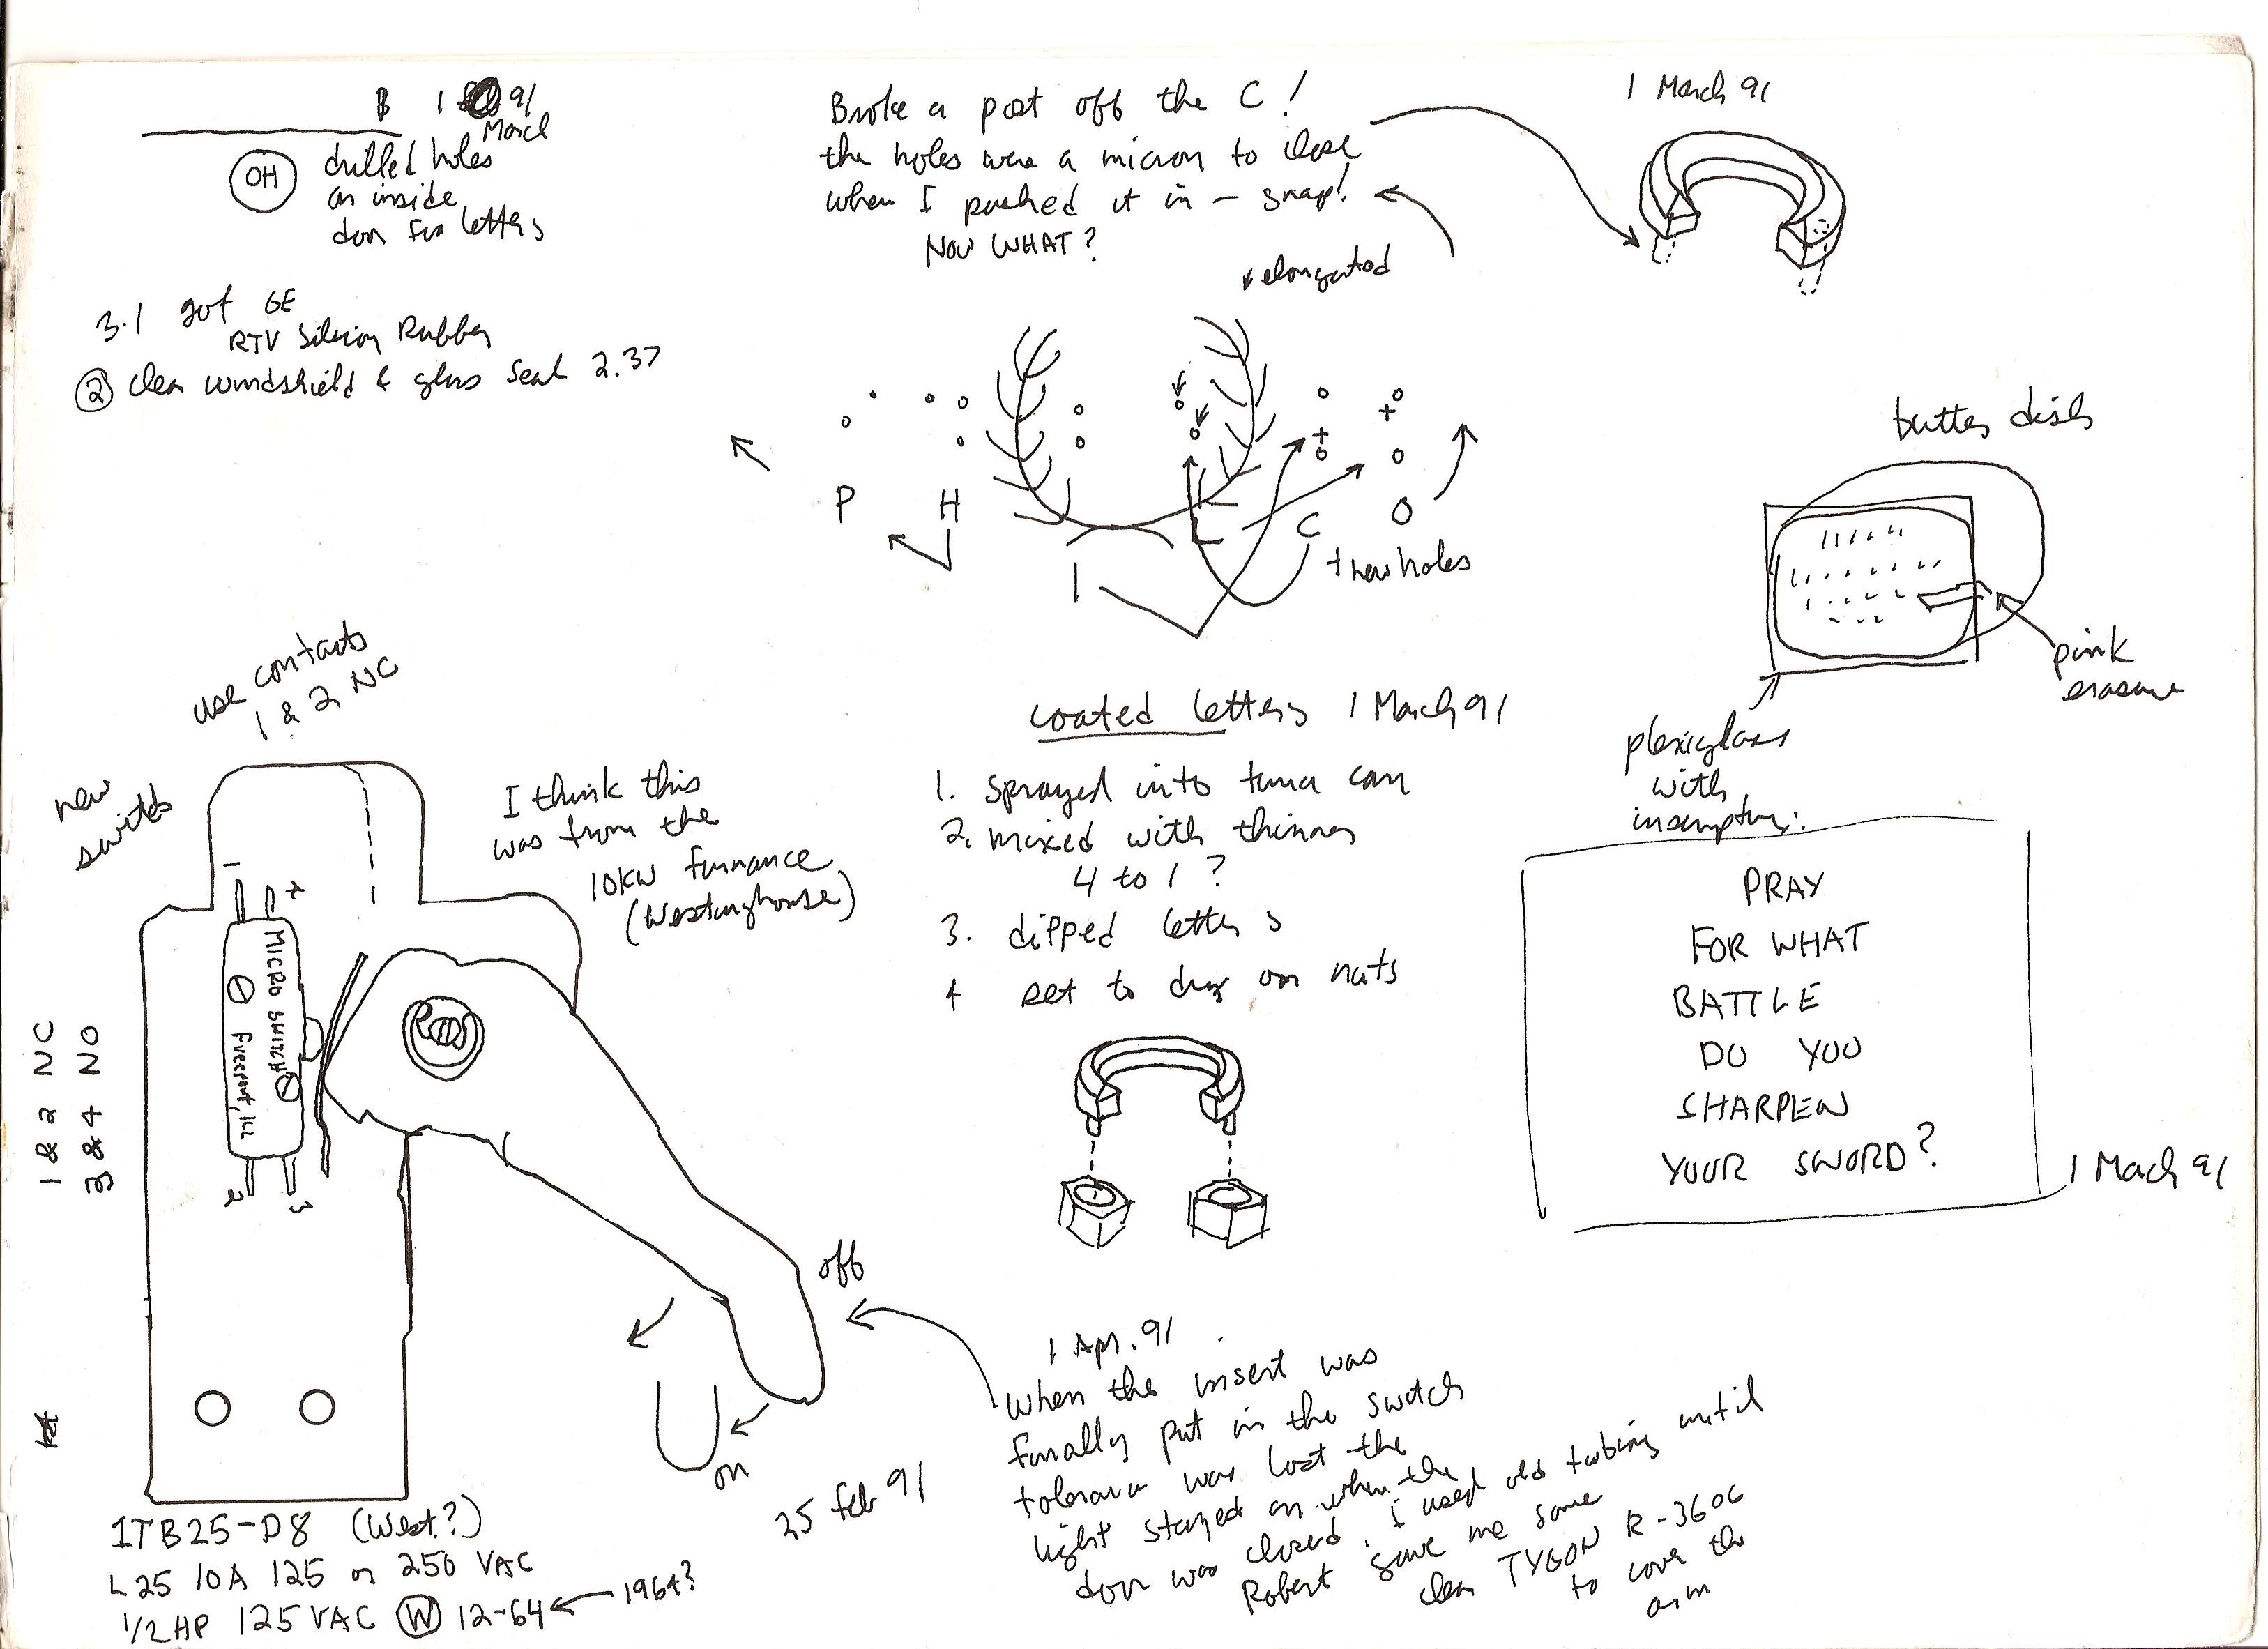 B 1 91
March
OH
drilled holes
on inside
door for letters
3.1 got GE
RTV Silicon Rubber
② clear windshield & glass seal 2.37
Broke a post off the C!
the holes were a micron to close
when I pushed it in – snap!
NOW WHAT?
elongated
1 March 91
P H I L C O
+ new holes
butter dish
pink
erasure
plexiglass
with
inscription:
PRAY
FOR WHAT
BATTLE
DO YOU
SHARPEN
YOUR SWORD?
1 March 91
coated letters 1 March 91
1. sprayed into tuna can
2. mixed with thinner
4 to 1?
3. dipped letters
4 set to dry on nuts
use contacts
1 & 2 NC
new
switch
I think this
was from the
10KW furnance
(Westinghouse)
1 4
MICRO SWITCH
Freeport, Ill
2 3
1 & 2 NC
3 & 4 NO
off
on
25 Feb 91
1TB25-D8 (West.?)
L25 10A 125 or 250 VAC
1/2 HP 125 VAC Ⓦ 12-64 ← 1964?
1 Apr. 91
When the insert was
finally put in the switch
tolerance was lost the
light stayed on when the
door was closed, I used old tubing until
Robert gave me some
clear TYGON R-3606
to cover the
arm